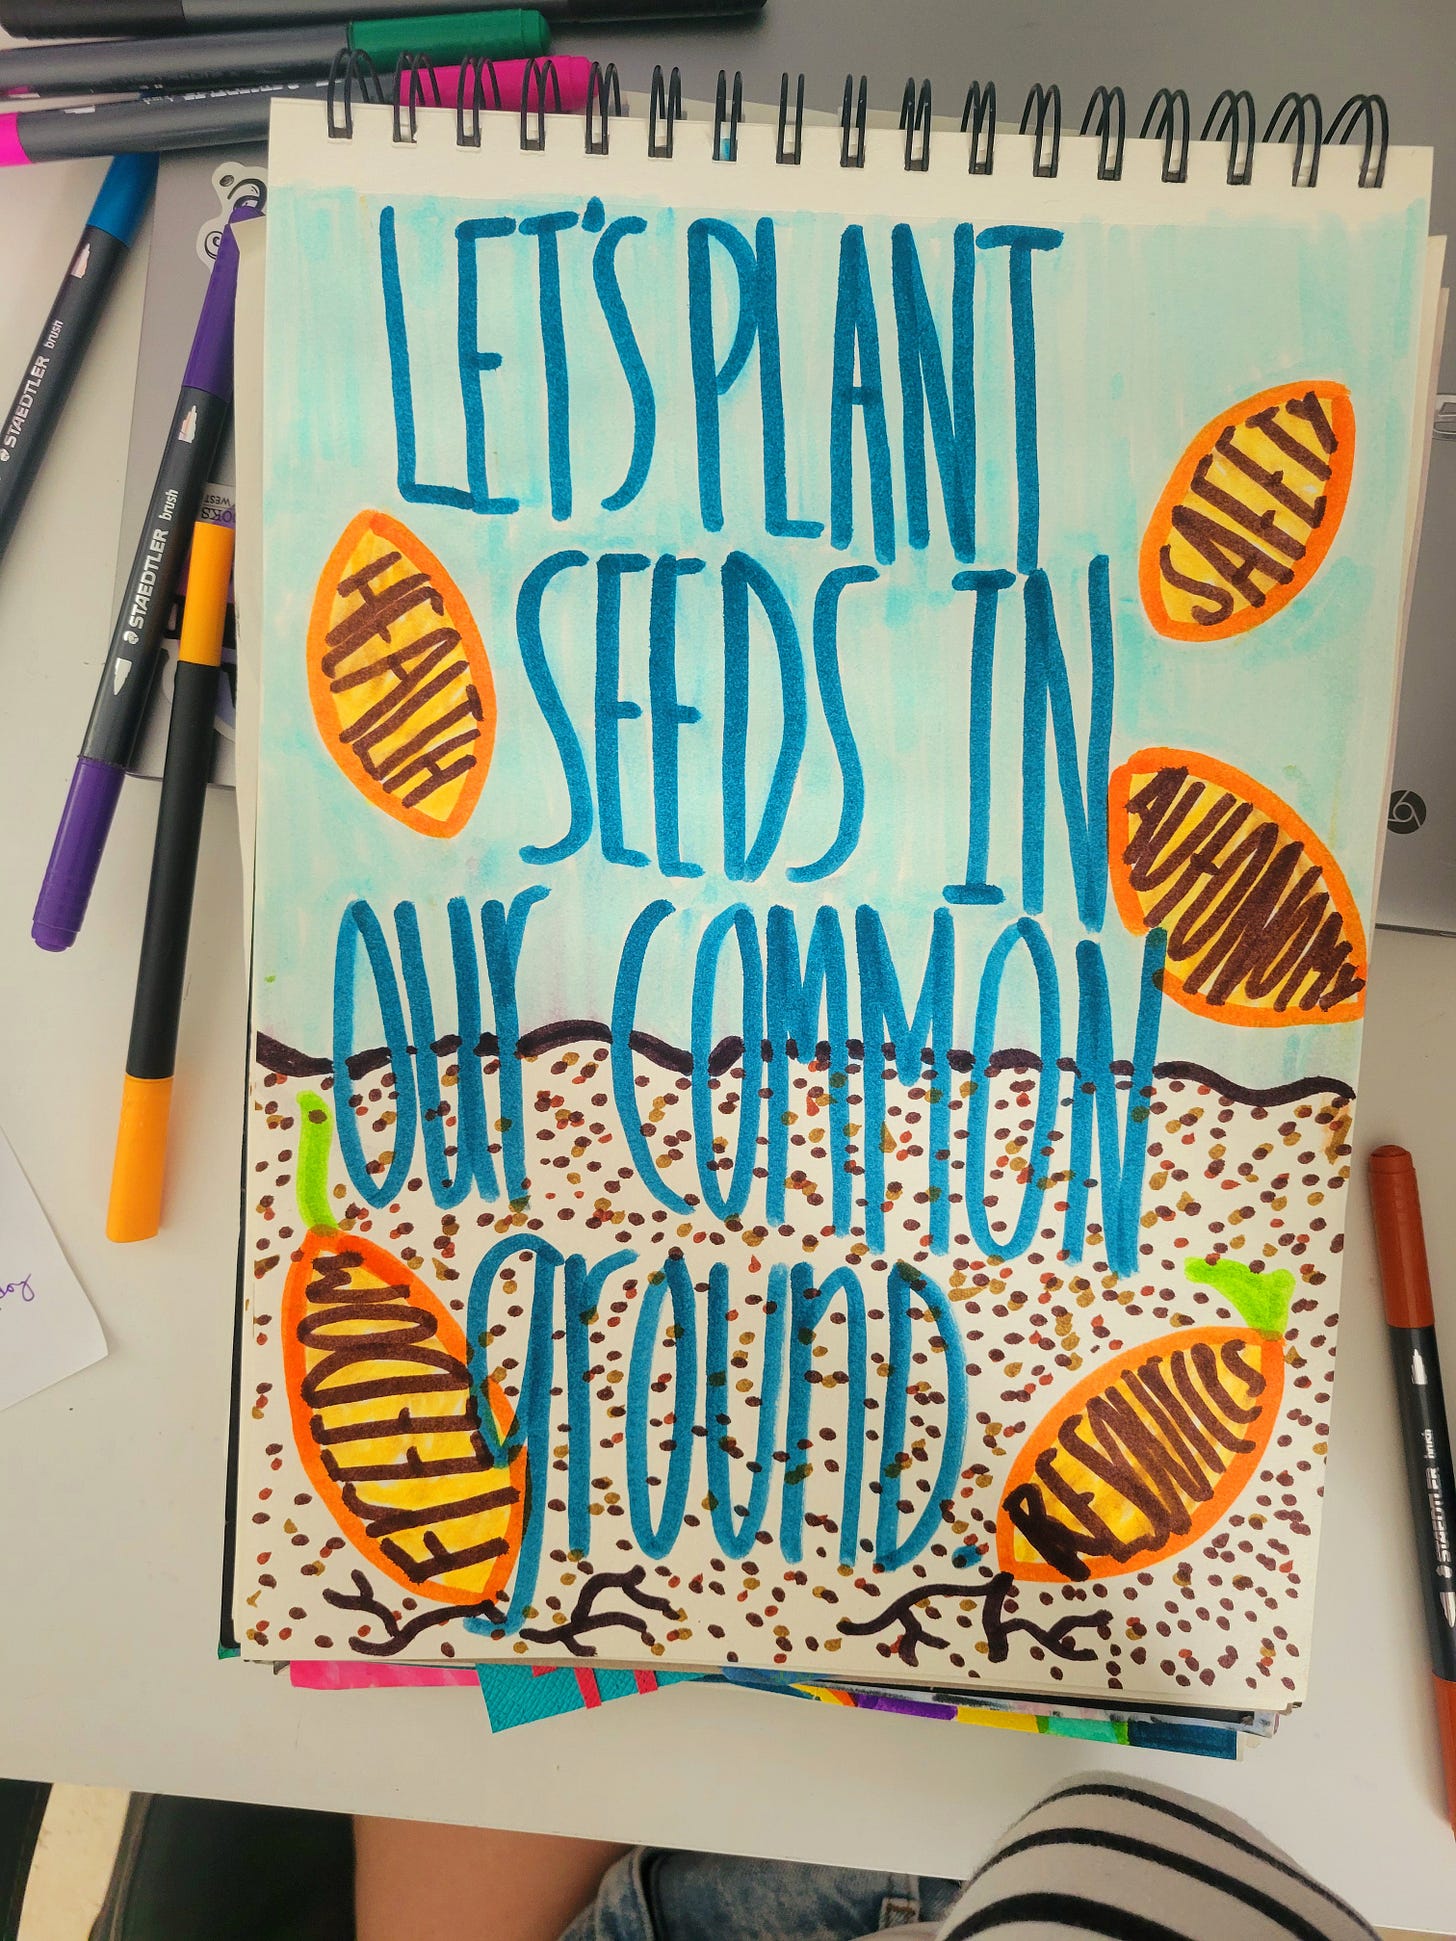 LET'S PLANT
SAFETY
HEALTH
SEEDS IN
AUTONOMY
OUR COMMON
GROUND.
FREEDOM
RESOURCES
STAEDTLER brush
STAEDTLER brush
STAEDTLER brush